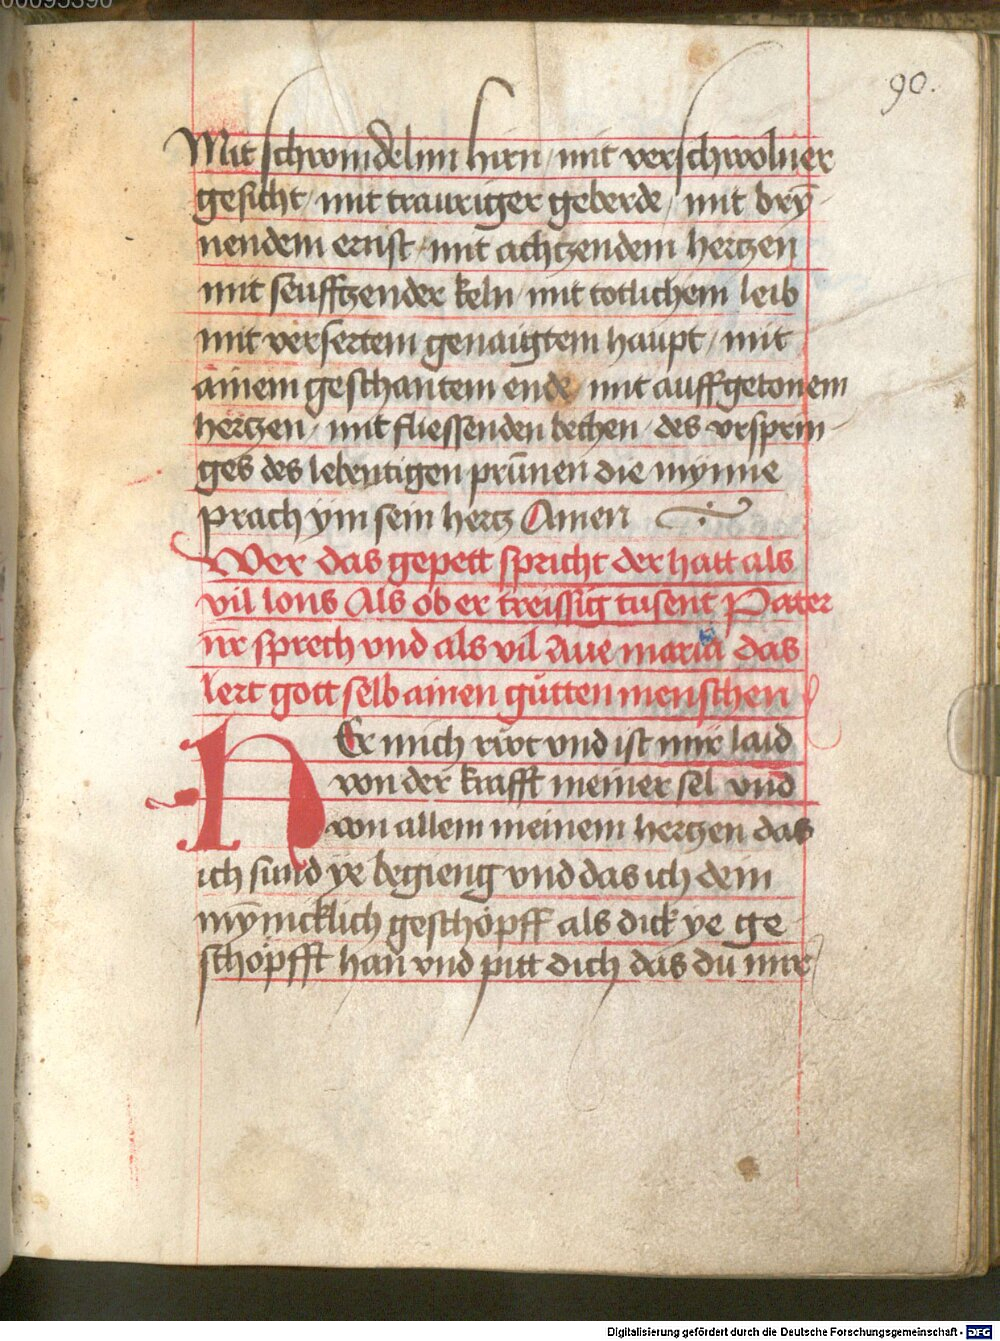 00095390
90.
Mit schwindelim hirn / mit verschwolner
gesicht / mit trauriger geberde / mit brȳ
nendem ernst / mit achtzendem hertzen
mit seufftzender keln / mit totlichem leib
mit versertem genaigtem haupt / mit
ainem geschantem ende mit auffgetonem
hertzen / mit fliessenden bechen / des ursprin
ges des lebentigen prūnen die mynne
prach ym sein hertz Amen
Wer das gepett spricht der hatt als
vil lons Als ob er treissig tusent Pater
nr̄ sprech vnd als vil Aue maria das
lert gott selb ainen gůtten menschen
HEr mich rwt vnd ist mir laid
von der krafft meiner sel vnd
von allem meinem hertzen das
ich sund ye begieng vnd das ich dein
mȳnicklich geschöpff als dick ye ge
schöpfft han vnd pitt dich das du mir
Digitalisierung gefördert durch die Deutsche Forschungsgemeinschaft - DFG